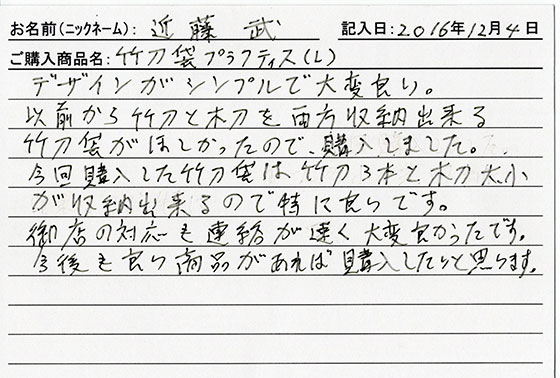 お名前(ニックネーム): 近藤 武 記入日:2016年12月4日
ご購入商品名:竹刀袋プラクティス(L)
デザインがシンプルで大変良い。
以前から竹刀と木刀を両方収納出来る
竹刀袋がほしかったので、購入しました。
今回購入した竹刀袋は竹刀3本と木刀大小
が収納出来るので特に良いです。
御店の対応も連絡が速く大変良かったです。
今後も良い商品があれば購入したいと思います。